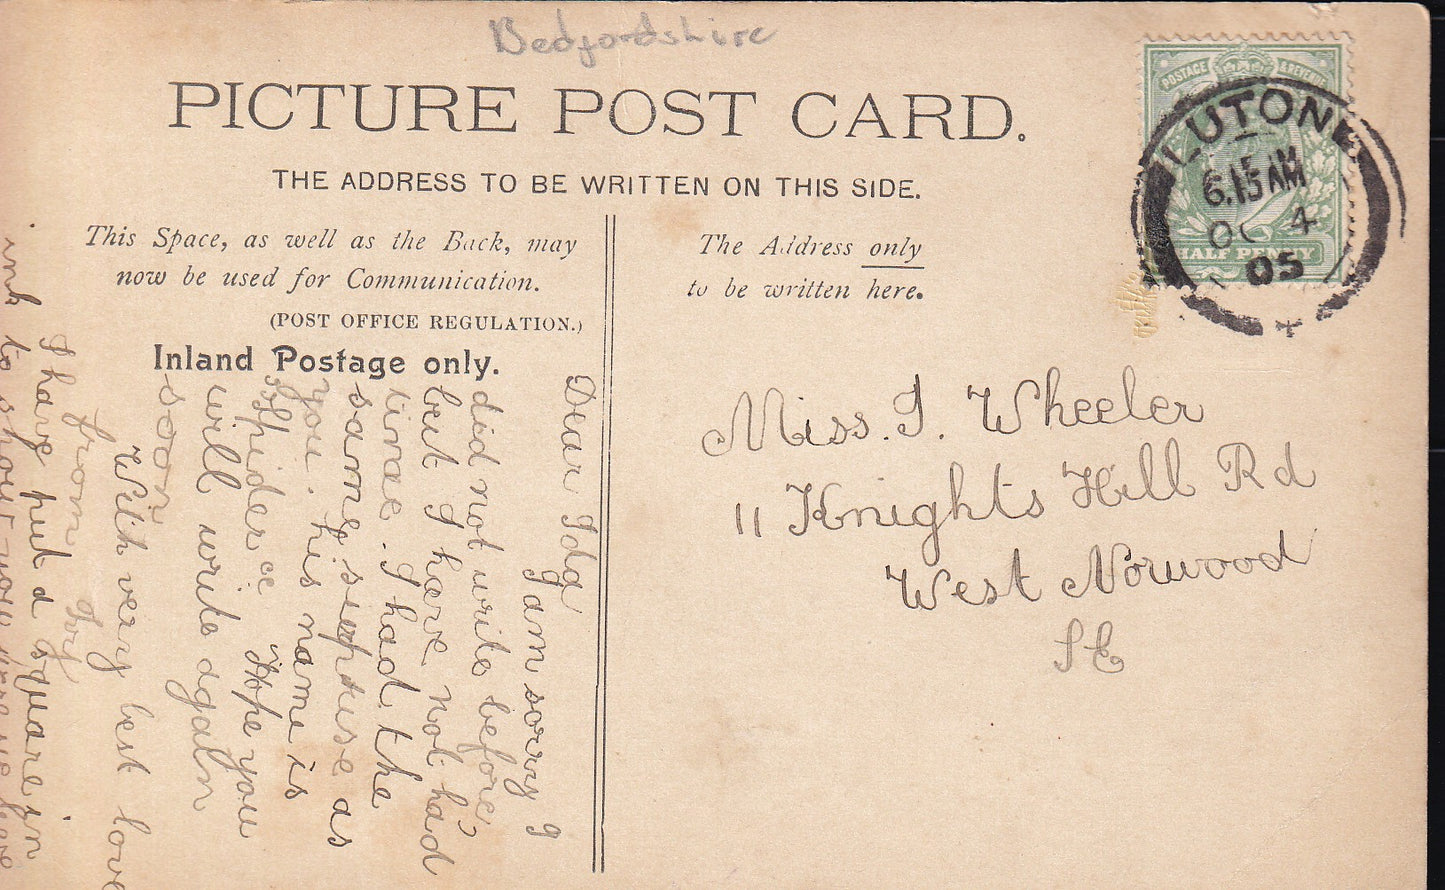 Bedfordshire
PICTURE POST CARD.
THE ADDRESS TO BE WRITTEN ON THIS SIDE.
This Space, as well as the Back, may
now be used for Communication.
(POST OFFICE REGULATION.)
Inland Postage only.
The Address only
to be written here.
POSTAGE & REVENUE
HALF PENNY
LUTON
6.15 AM
OC 4
05
Miss. I. Wheeler
11 Knights Hill Rd
West Norwood
S E
Dear Ida
I am sorry I
did not write before,
but I have not had
time. I had the
same surprise as
you. his name is
Spider. Hope you
will write again
soon
With very best love
from Ivy
I have put a square in
ink to show you where we have